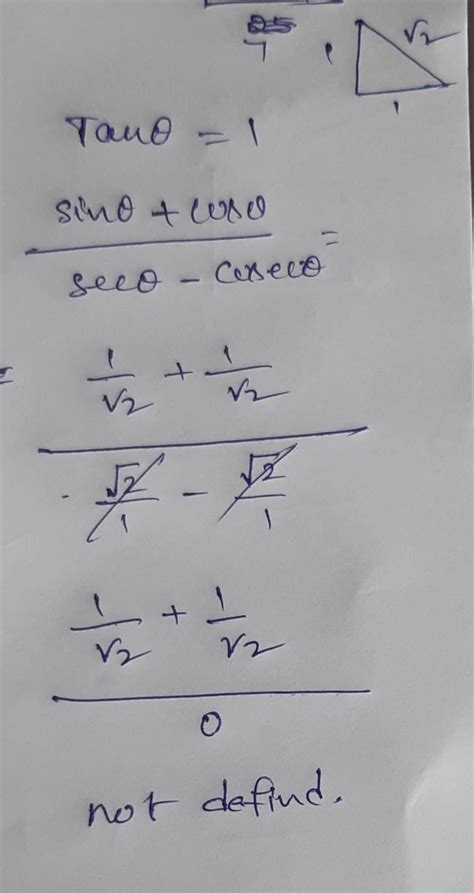 7
1 √2
1
Tanθ = 1
sinθ + cosθ
secθ - cosecθ =
= 1/√2 + 1/√2
√2/1 - √2/1
1/√2 + 1/√2
0
not defind.